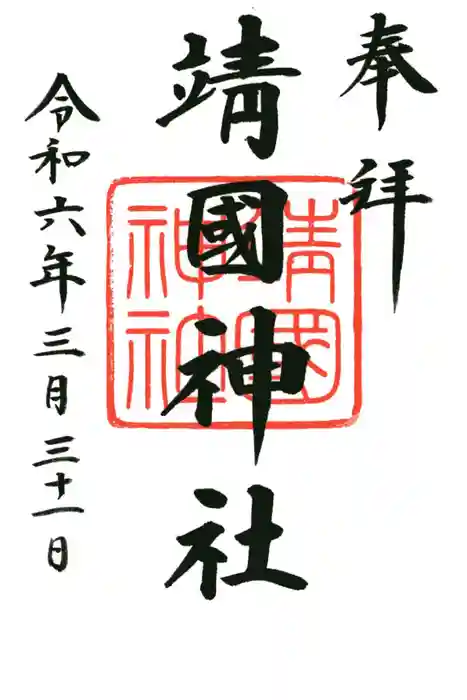 奉拝
靖國神社
靖國
神社
令和六年三月三十一日